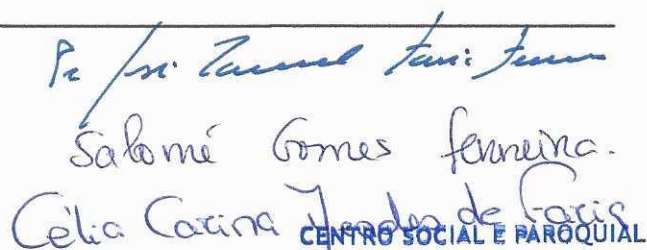 Pe José Manuel Faria
Salomé Gomes Ferreira.
Célia Carina Mendes de Faria
CENTRO SOCIAL E PAROQUIAL